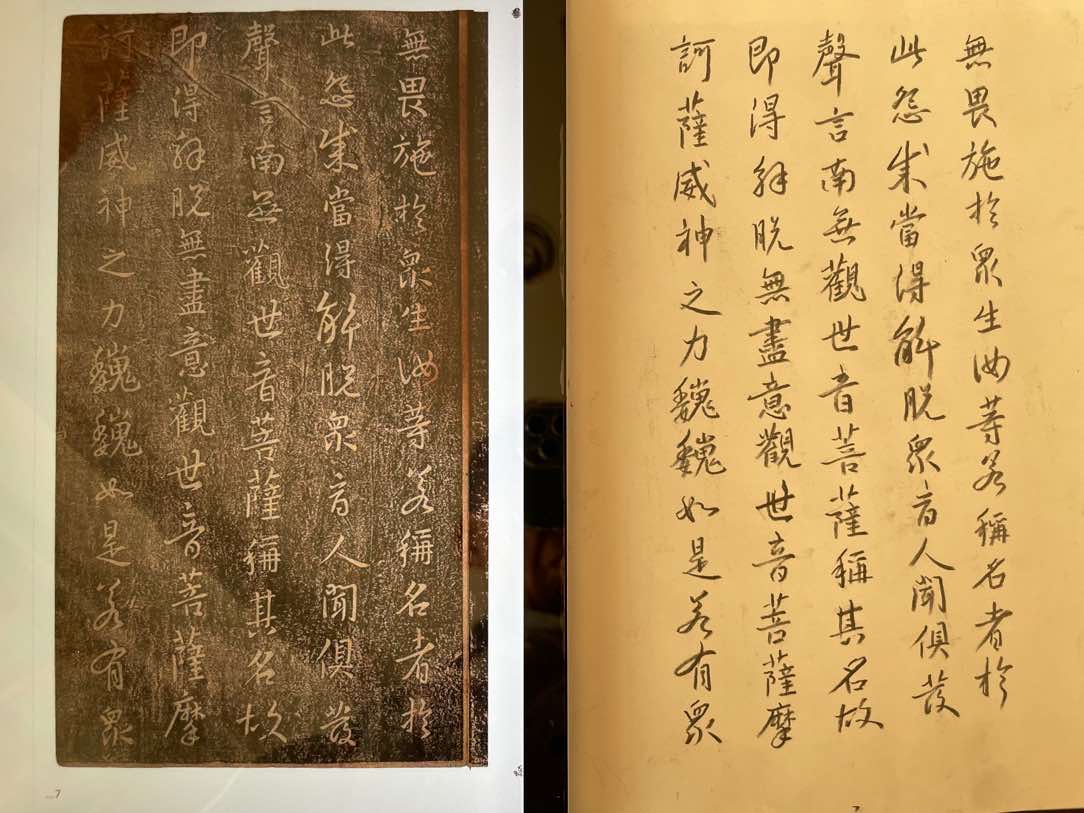 無畏施於眾生汝等若稱名者於
此怨賊當得解脫眾商人聞俱發
聲言南無觀世音菩薩稱其名故
即得解脫無盡意觀世音菩薩摩
訶薩威神之力巍巍如是若有眾
7
無畏施於眾生汝等若稱名者於
此怨賊當得解脫眾商人聞俱發
聲言南無觀世音菩薩稱其名故
即得解脫無盡意觀世音菩薩摩
訶薩威神之力巍巍如是若有眾